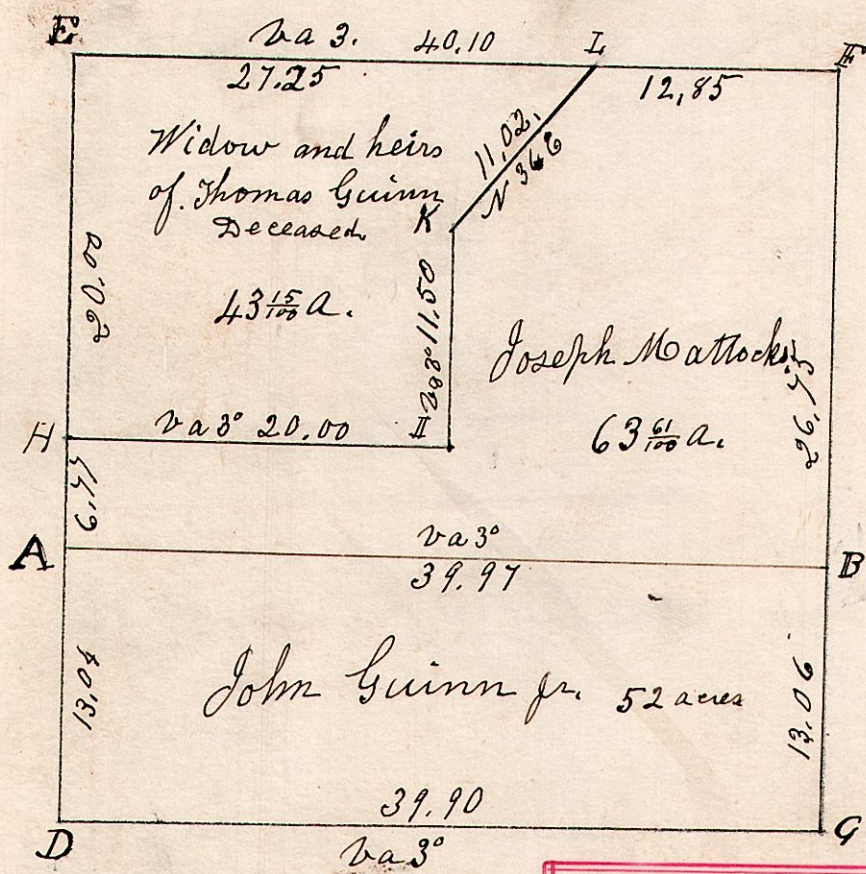 E va 3. 40.10 L F
27.25 12,85
Widow and heirs
of Thomas Guinn
Deceased
43 15/100 A.
20.00
K
11,02,
N 36 E
va 3° 11.50
Joseph Mattocks
63 61/100 a.
26.75
H va 3° 20.00 I
6,77
A va 3° B
39.97
John Guinn Jr. 52 acres
13.04
13.06
39.90
D va 3° G